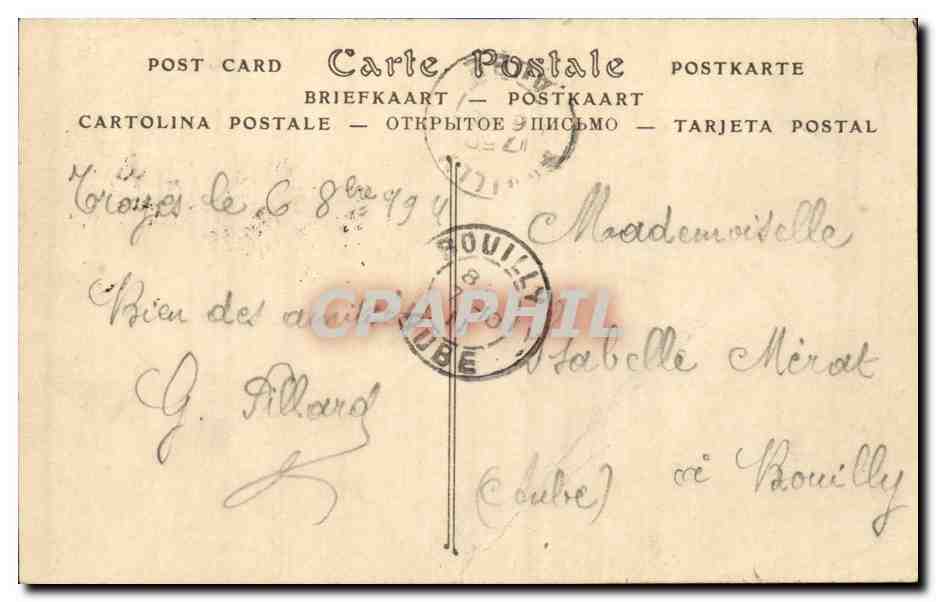 POST CARD Carte Postale POSTKARTE
BRIEFKAART — POSTKAART
CARTOLINA POSTALE — ОТКРЫТОЕ ПИСЬМО — TARJETA POSTAL
Troyes le 6 8bre
Bien des amitiés
G. Pillard
Mademoiselle
Isabelle Mérat
à Bouilly
(Aube)
BOUILLY
AUBE
CPAPHIL